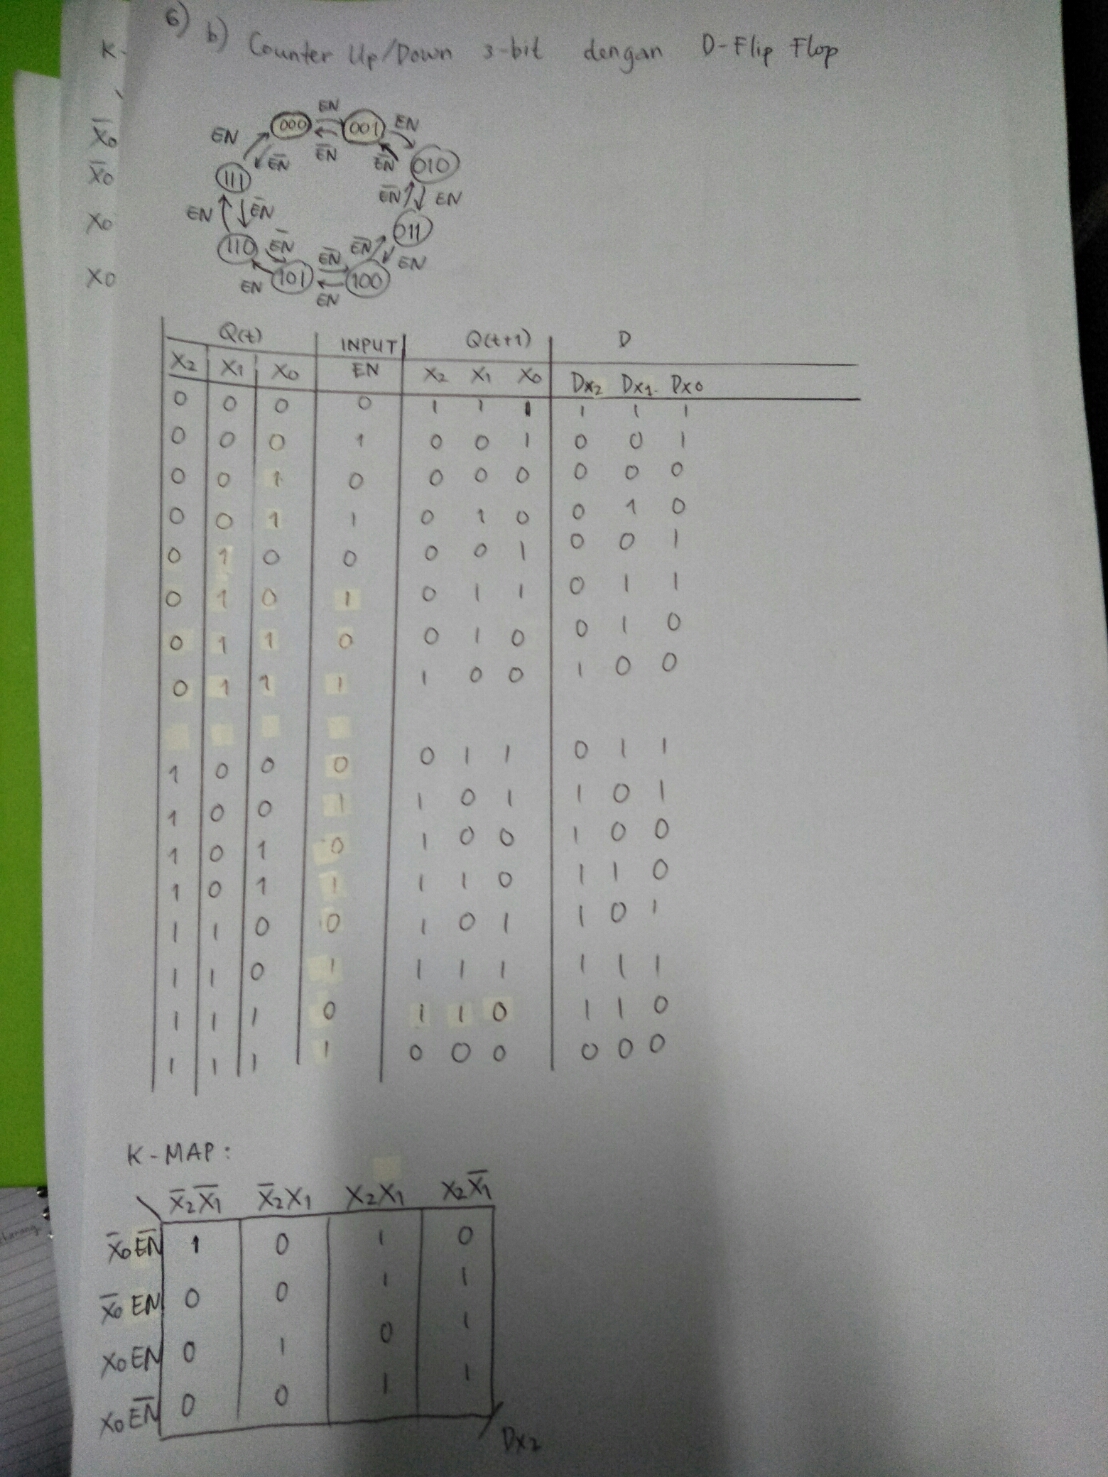 6) b) Counter Up/Down 3-bit dengan D-Flip Flop
K-
X̅0
X̅0
X0
X0
EN
000 001 EN
EN E̅N̅ E̅N̅ E̅N̅ 010
111 E̅N̅ EN
EN E̅N̅ 011
110 E̅N̅ E̅N̅ E̅N̅ EN
EN 101 100
EN
Q(t) INPUT Q(t+1) D
X2 X1 X0 EN X2 X1 X0 Dx2 Dx1 Dx0
0 0 0 0 1 1 1 1 1 1
0 0 0 1 0 0 1 0 0 1
0 0 1 0 0 0 0 0 0 0
0 0 1 1 0 1 0 0 1 0
0 1 0 0 0 0 1 0 0 1
0 1 0 1 0 1 1 0 1 1
0 1 1 0 0 1 0 0 1 0
0 1 1 1 1 0 0 1 0 0
1 0 0 0 0 1 1 0 1 1
1 0 0 1 1 0 1 1 0 1
1 0 1 0 1 0 0 1 0 0
1 0 1 1 1 1 0 1 1 0
1 1 0 0 1 0 1 1 0 1
1 1 0 1 1 1 1 1 1 1
1 1 1 0 1 1 0 1 1 0
1 1 1 1 0 0 0 0 0 0
K-MAP:
X̅2X̅1 X̅2X1 X2X1 X2X̅1
X̅0E̅N̅ 1 0 1 0
X̅0EN 0 0 1 1
X0EN 0 1 0 1
X0E̅N̅ 0 0 1 1
Dx2